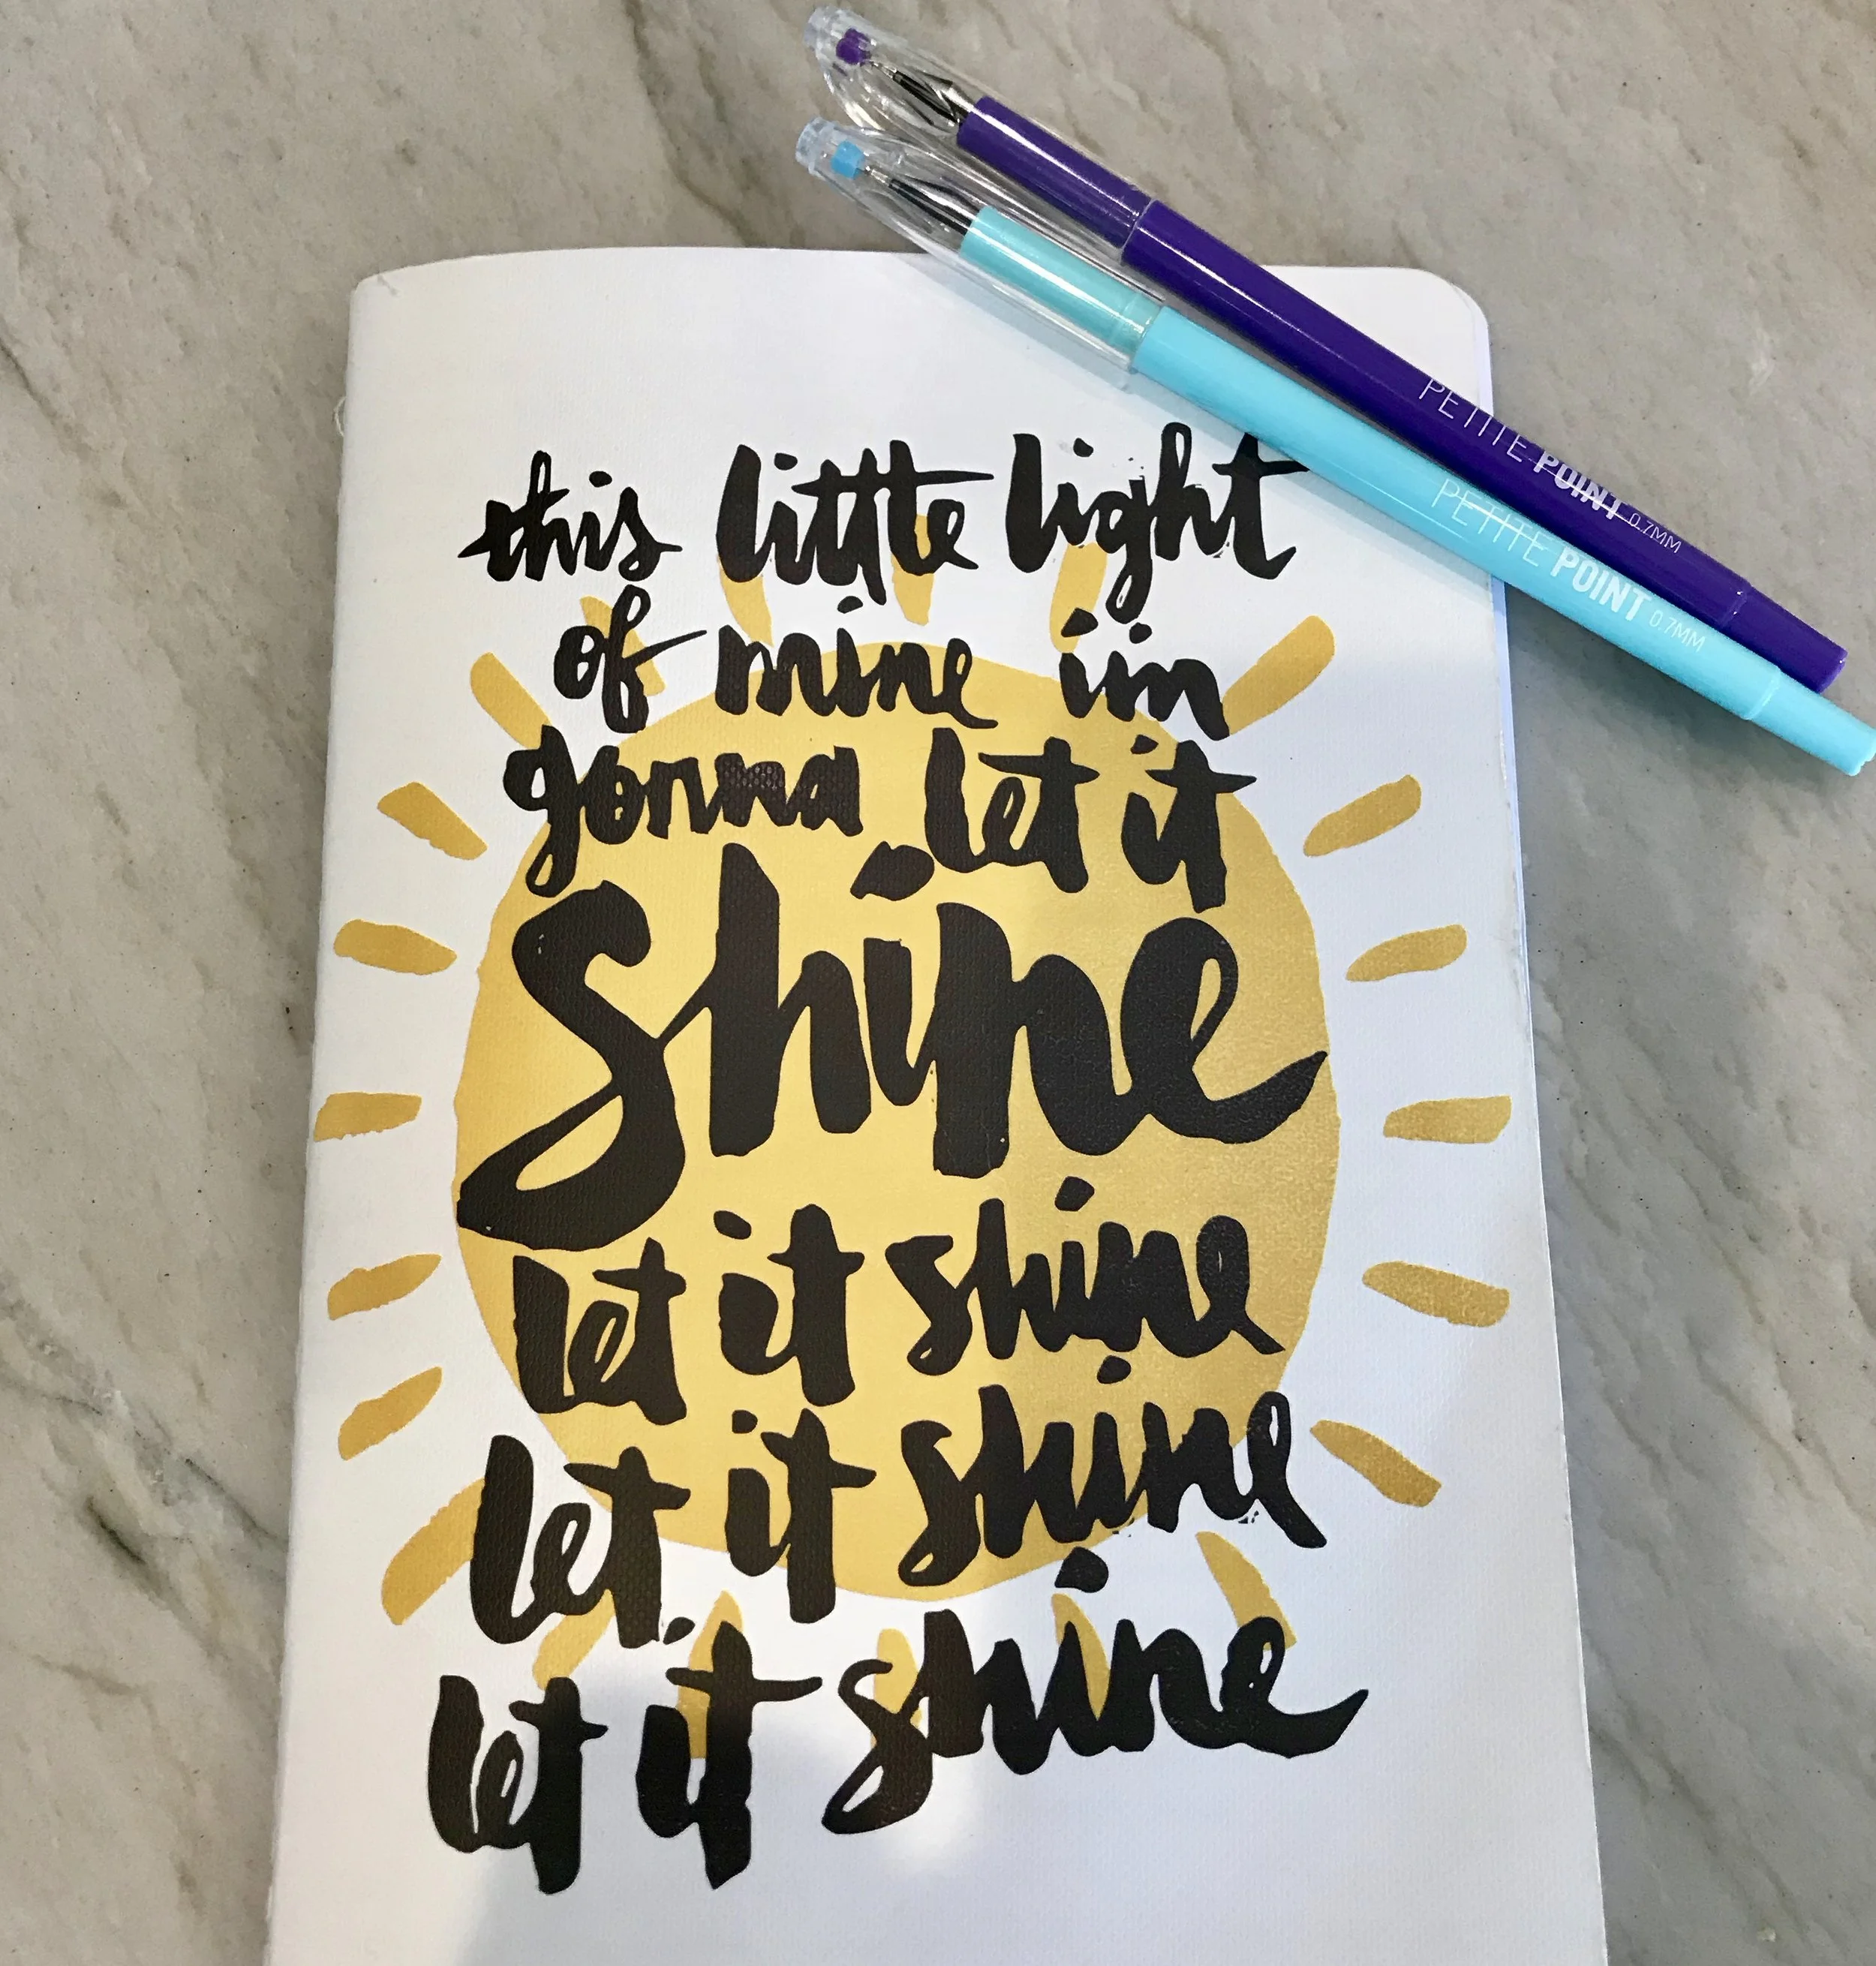 PETITE POINT 0.7MM
PETITE POINT 0.7MM
this little light
of mine im
gonna let it
shine
let it shine
let it shine
let it shine